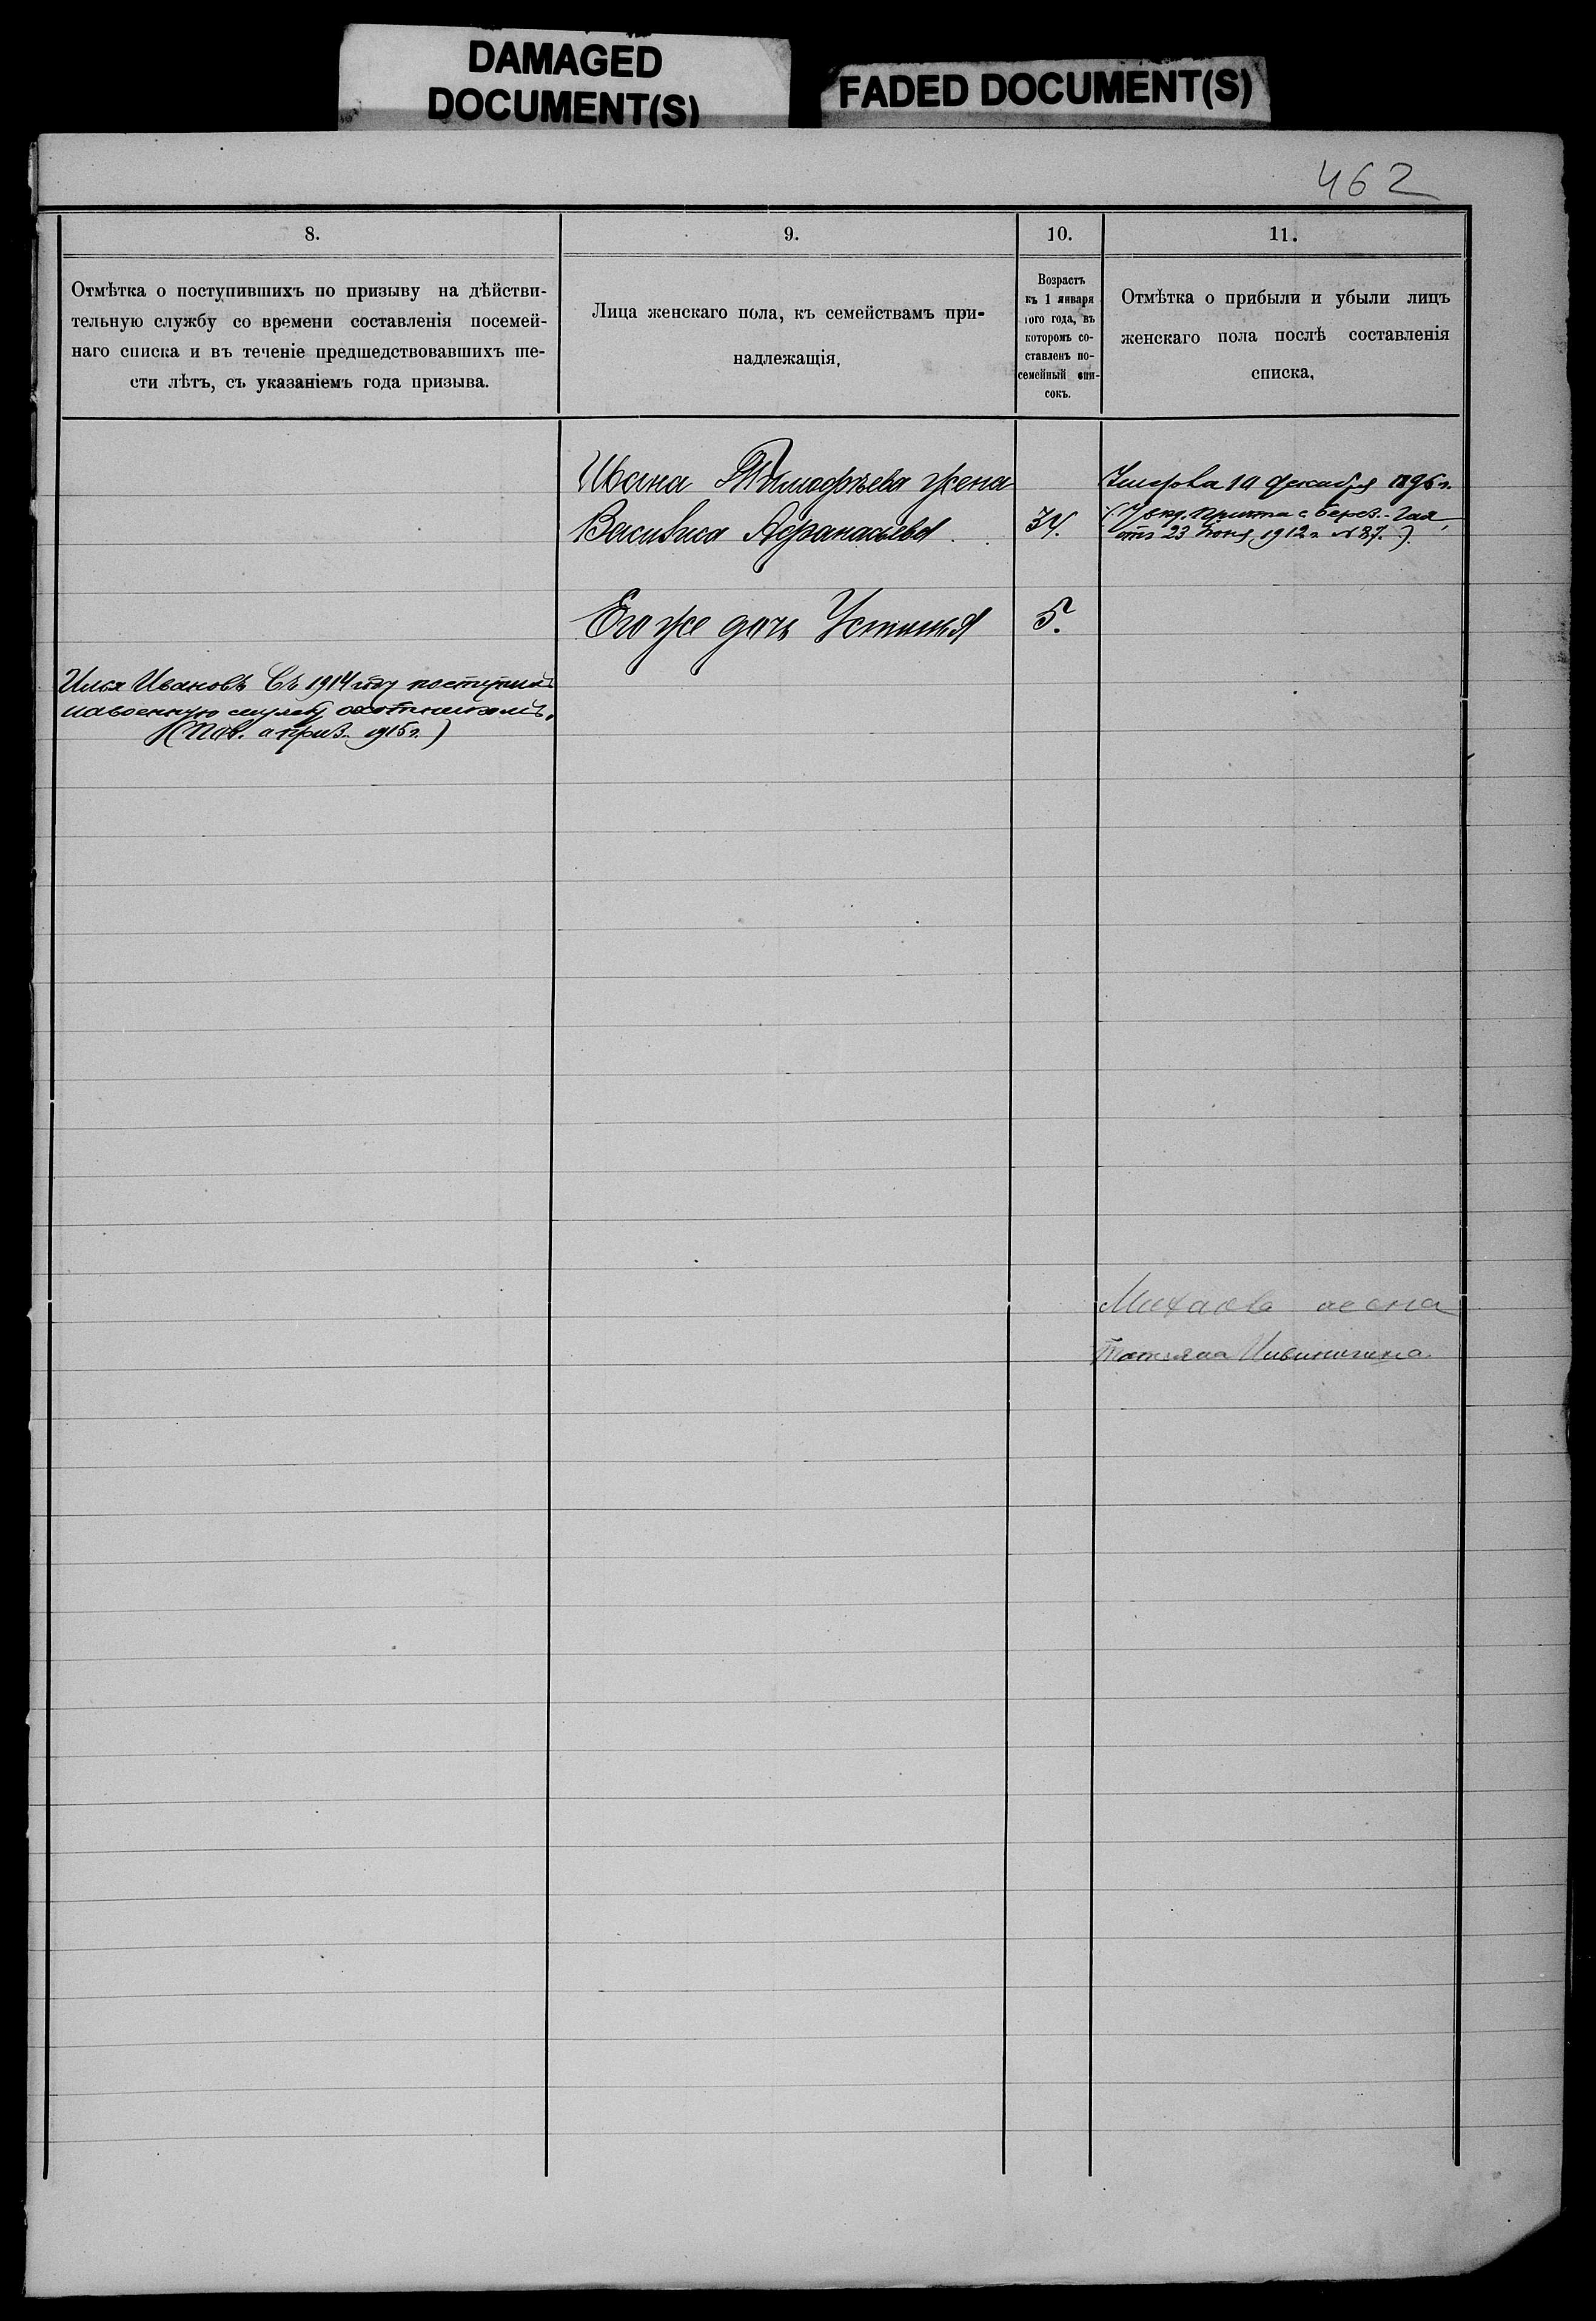 DAMAGED
DOCUMENT(S)
FADED DOCUMENT(S)
462
8.
Отмѣтка о поступившихъ по призыву на дѣйстви-
тельную службу со времени составленія посемей-
наго списка и въ теченіе предшедствовавшихъ ше-
сти лѣтъ, съ указаніемъ года призыва.
9.
Лица женскаго пола, къ семействамъ при-
надлежащія,
10.
Возрастъ
къ 1 января
того года, въ
которомъ со-
ставленъ по-
семейный спи-
сокъ.
11.
Отмѣтка о прибыли и убыли лицъ
женскаго пола послѣ составленія
списка,
Ивана Тимофѣева жена
Василиса Афанасьева
34.
Умерла 19 декабря 1896 г.
(Увѣд. причта с. Берез.-Гая,
отъ 23 Іюня 1912 г. № 87.)
Его же дочь Устинья
5.
Илья Ивановъ Съ 1914 году поступилъ
на военную службу охотникомъ.
(Пов. а приз. 1915 г.)
жена
Татьяна